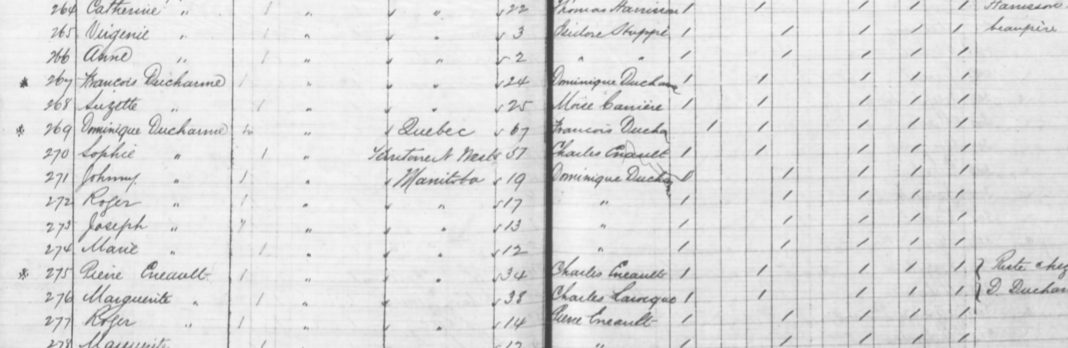 264 Catherine " 1 " " " 22 Thomas Harrison 1 1 1 1 1 1 Harrisson
265 Virginie " 1 " " " 3 Isidore Huppé 1 1 1 1 1 beaupère
266 Anne " 1 " " " 2 " " 1 1 1 1 1
* 267 Francois Ducharme 1 " " " 24 Dominique Ducharme 1 1 1 1 1
268 Suzette " 1 " " " 25 Moise Carriere 1 1 1 1 1 1
* 269 Dominique Ducharme 1 " " Quebec 67 Francois Ducha 1 1 1 1 1
270 Sophie " 1 " Territoire N West 57 Charles Eneault 1 1 1 1 1
271 Johnny " 1 " " Manitoba 19 Dominique Ducha 1 1 1 1 1
272 Roger " 1 " " " 17 " 1 1 1 1 1
273 Joseph " " " " 13 " 1 1 1 1 1
274 Marie " 1 " " " 12 " 1 1 1 1 1
* 275 Pierre Eneault 1 " " " 34 Charles Eneault 1 1 1 1 1 } Reste chez
276 Marguerite " 1 " " " 38 Charles Larocque 1 1 1 1 1 } D Duchar
277 Roger " 1 " " " 14 Pierre Eneault 1 1 1 1 1
278 Marguerite 12 "